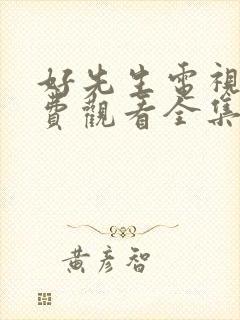 好先生電視
費觀看全集
黃彥智